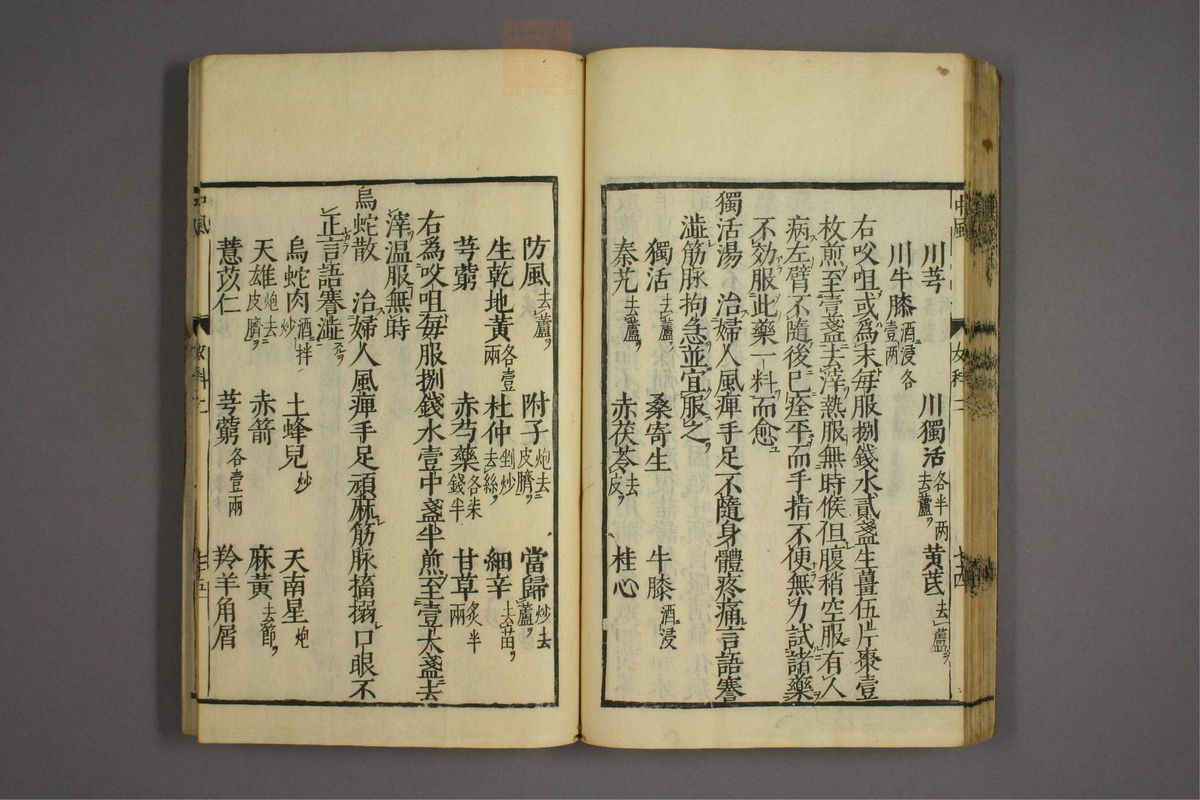 川芎 川獨活各半兩去蘆 黃芪去蘆
川牛膝酒浸各壹兩
右㕮咀或爲末每服捌錢水貳盞生薑伍片棗壹
枚煎至壹盞去滓熱服無時候但腹稍空服有人
病左臂不隨後已痊平而手指不便無力試諸藥
不効服此藥一料而愈
獨活湯 治婦人風痺手足不隨身體疼痛言語謇
澁筋脉拘急並宜服之
獨活去蘆 桑寄生 牛膝酒浸
秦艽去蘆 赤茯苓去皮 桂心
防風去蘆 附子炮去皮臍 當歸炒去蘆
生乾地黃各壹兩 杜仲剉炒去絲 細辛去苗
芎藭 赤芍藥各柒錢半 甘草炙半兩
右爲㕮咀每服捌錢水壹中盞半煎至壹大盞去
滓温服無時
烏蛇散 治婦人風痺手足頑麻筋脉搐搦口眼不
正言語謇澁
烏蛇肉酒拌炒 土蜂兒炒 天南星炮
天雄炮去皮臍 赤箭 麻黃去節
薏苡仁 芎藭各壹兩 羚羊角屑
中風 女科二 七十四
中風 女科二 七十五